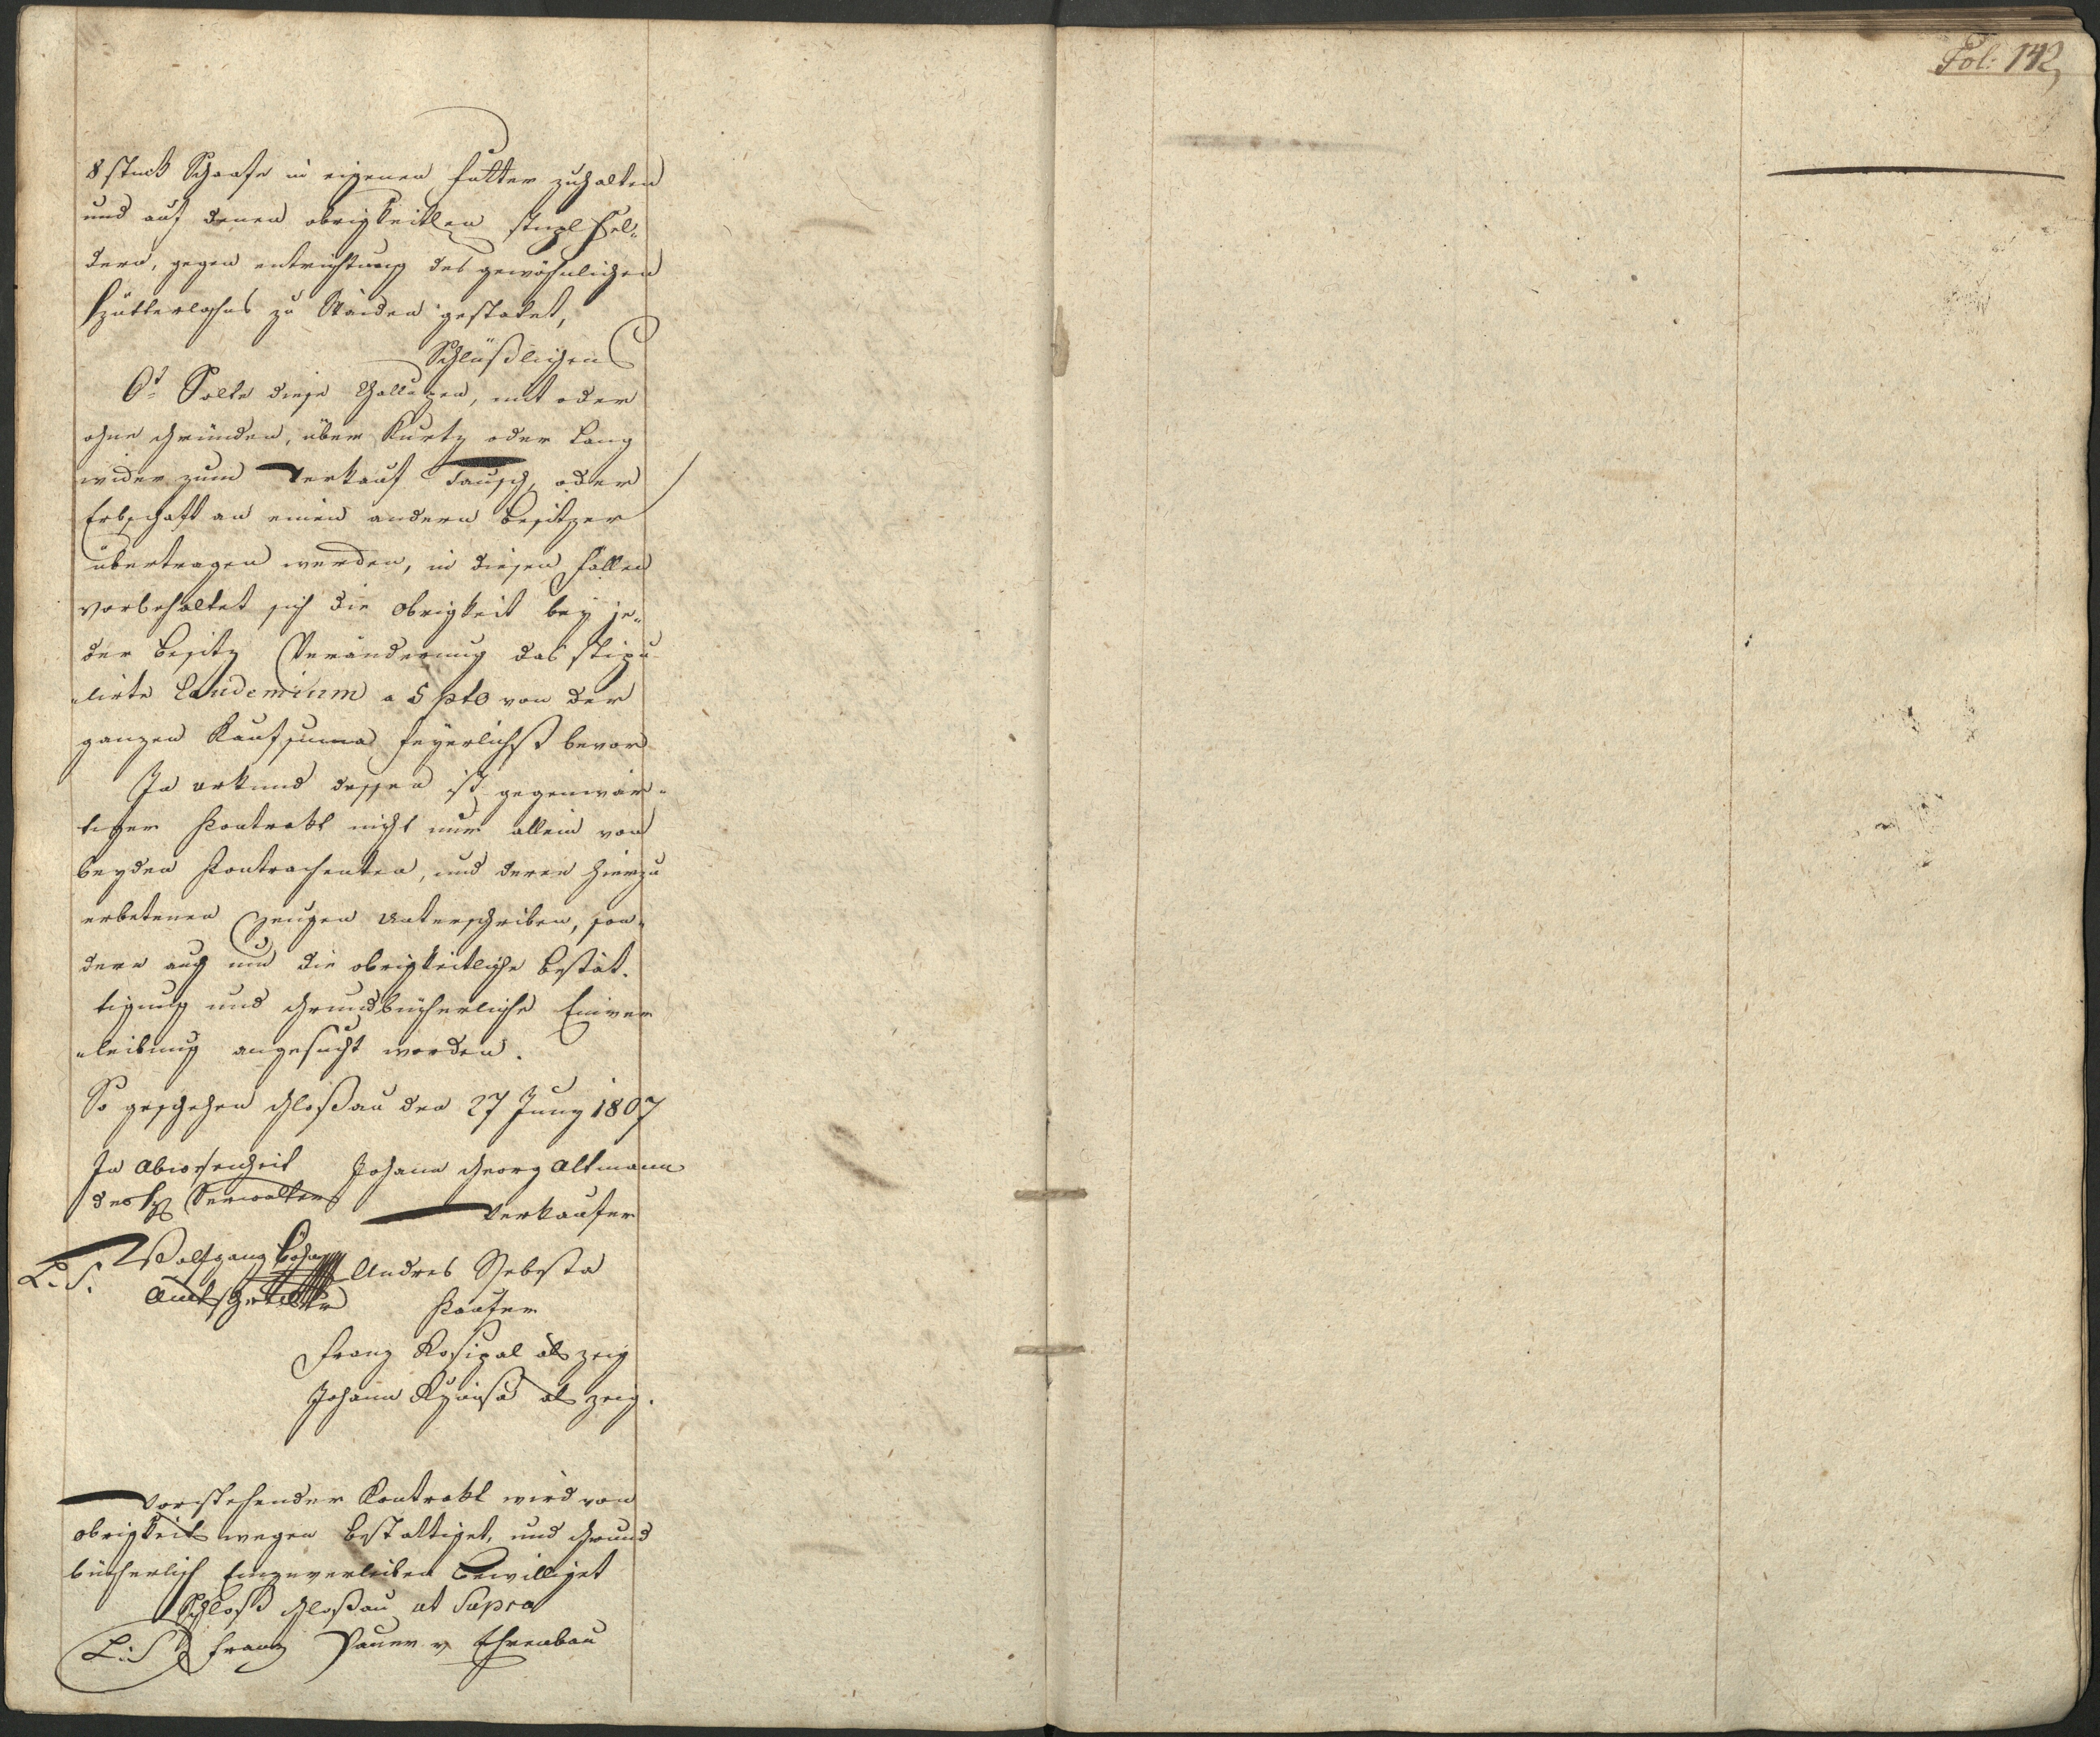 8 stuck Schaafe in eigenen Futter zuhalten
und auf denen obrigkeitlen stupl Fel„
dern, gegen entrichtung des gewöhnlichen
Hütterlohns zu Waiden gestatet,
Schlüßlichen
6t Solte diese Challupen, mit oder
ohne Gründen, über Kurtz oder Lang
wider zum Verkauf Tausch, oder
Erbschaft an einen andern Besitzer
übertragen werden, in diesen Fallen
vorbehaltet sich die Obrigkeit bey je„
der Besitz Veränderung das stipu
„lirte Laudemium a 5 pto von der
ganzen Kaufsuma feyerlichst bevor
In urkund dessen ist gegenwär„
tiger Kontrakt nicht nur allein von
beyden Kontrahenten, und deren hierzu
erbetenen Zeugen Unterschriben, son„
dern auch um die obrigkeitliche Bestät„
tigung und Grundbücherliche Einver
„leibung angesucht worden.
So geschehen Gloßau den 27 Juny 1807
In Abwesenheit Johann Georg Altmann
des H Verwalters
Verkaufer
L. S. Wolfgang Böhm
Andres Schebsta
Amtsschreiber
Kaufer
Franz Rosipal als zeig
Johann als zeig.
Vorstehender Kontrakt wird von
obrigkeits wegen bestattiget, und Grund
bücherlich Einzuverleiben Bewilliget
Schloß Gloßau ut Supra
L: S Franz Bauer v Ehrenbau
Fol: 142